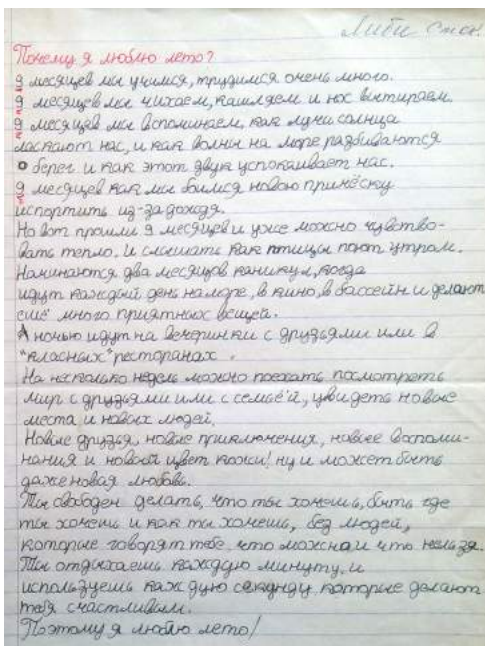 Либи Сток.
Почему я люблю лето?
9 месяцев мы учимся, трудимся очень много.
9 месяцев мы чихаем, кашляем и нос вытираем.
9 месяцев мы вспоминаем, как лучи солнца
ласкают нас, и как волны на море разбиваются
о берег и как этот звук успокаивает нас.
9 месяцев как мы боимся новою причёску
испортить из-за дождя.
Но вот прошли 9 месяцев и уже можно чувство-
вать тепло. И слышать как птицы поют утром.
Начинаются два месяцов каникул, когда
идут каждый день на море, в кино, в бассейн и делают
ещё много приятных вещей.
А ночью идут на вечеринки с друзьями или в
"класных" ресторанах.
На несколько недель можно поехать посмотреть
мир с друзьями или с семьёй, увидеть новые
места и новых людей.
Новые друзья, новые приключения, новые воспоми-
нания и новый цвет кожи! ну и может быть
даже новая любовь.
Ты свободен делать, что ты хочешь, быть где
ты хочешь и как ты хочешь, без людей,
которые говорят тебе, что можно и что нельзя.
Ты отдыхаешь каждую минуту, и
используешь каждую секунду, которые делают
тебя счастливым.
Поэтому я люблю лето!